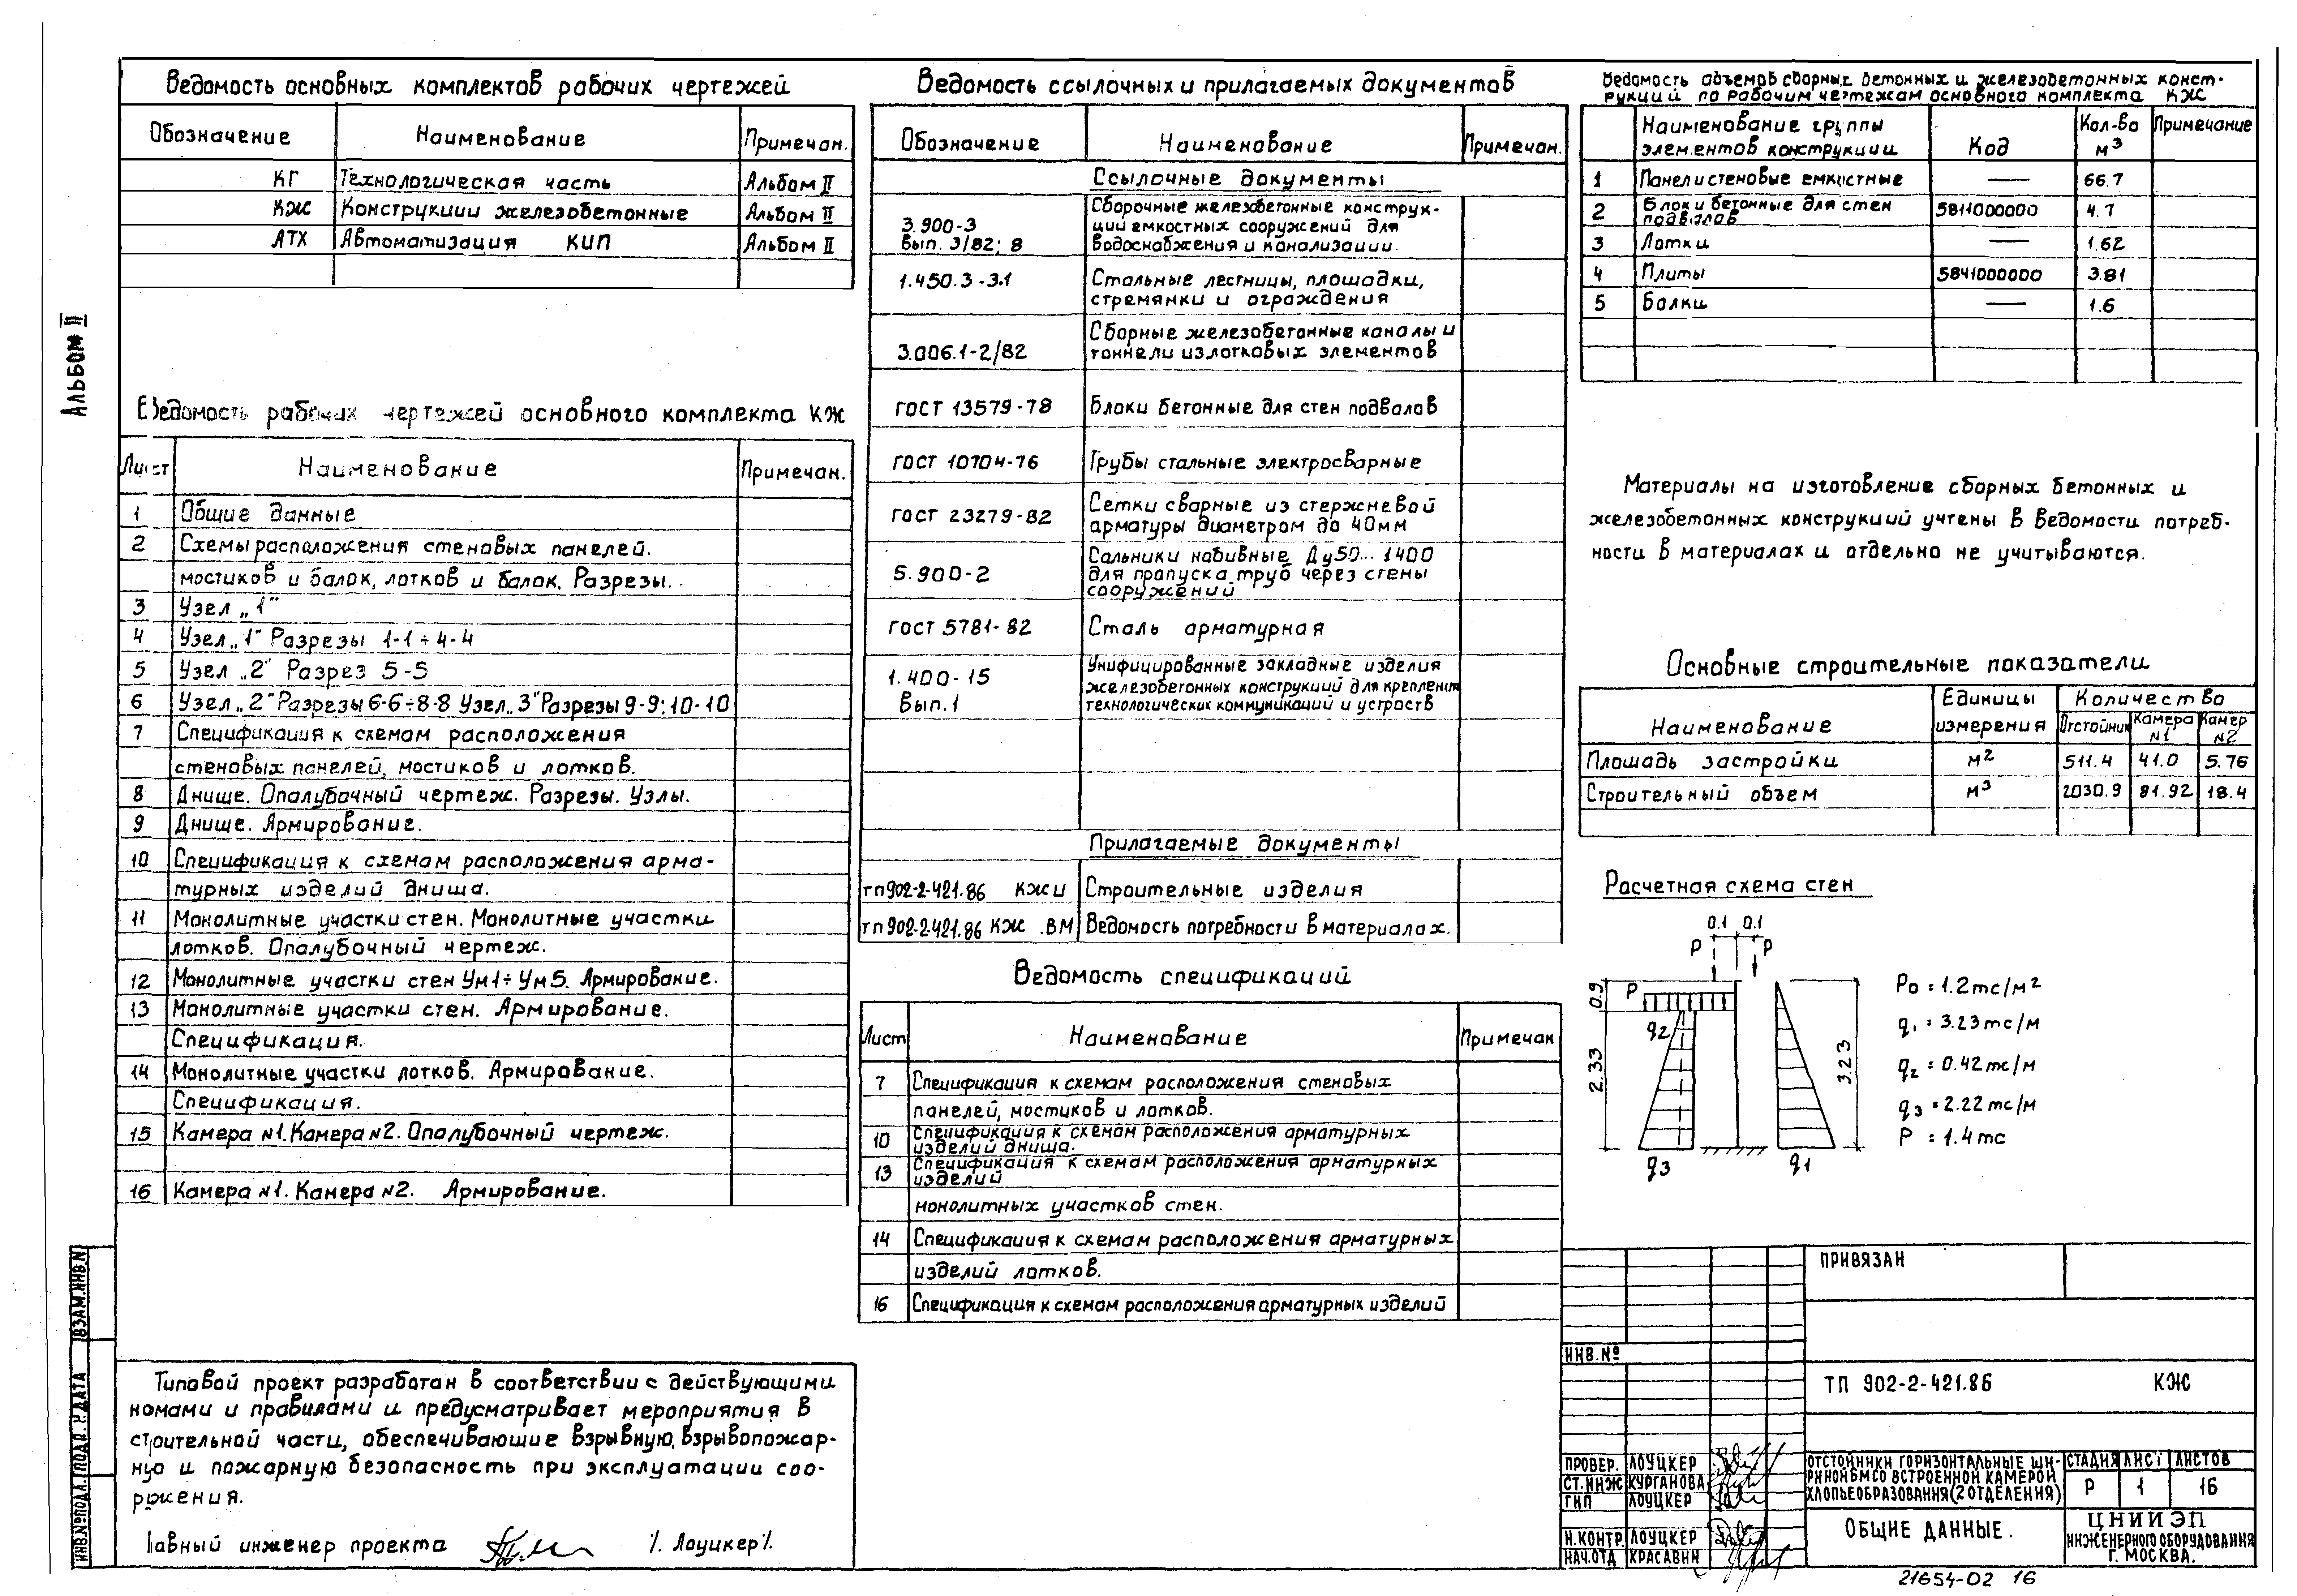 Альбом II
Ведомость основных комплектов рабочих чертежей
Обозначение Наименование Примечан.
КГ Технологическая часть Альбом II
КЖ Конструкции железобетонные Альбом II
АТХ Автоматизация КИП Альбом II
Ведомость рабочих чертежей основного комплекта КЖ
Лист Наименование Примечан.
1 Общие данные
2 Схемы расположения стеновых панелей.
мостиков и балок, лотков и балок. Разрезы.
3 Узел „1"
4 Узел „1" Разрезы 1-1÷4-4
5 Узел „2" Разрез 5-5
6 Узел „2" Разрезы 6-6÷8-8 Узел „3" Разрезы 9-9; 10-10
7 Спецификация к схемам расположения
стеновых панелей, мостиков и лотков.
8 Днище. Опалубочный чертеж. Разрезы. Узлы.
9 Днище. Армирование.
10 Спецификация к схемам расположения арма-
турных изделий днища.
11 Монолитные участки стен. Монолитные участки
лотков. Опалубочный чертеж.
12 Монолитные участки стен Ум1÷Ум5. Армирование.
13 Монолитные участки стен. Армирование.
Спецификация.
14 Монолитные участки лотков. Армирование.
Спецификация.
15 Камера №1. Камера №2. Опалубочный чертеж.
16 Камера №1. Камера №2. Армирование.
Типовой проект разработан в соответствии с действующими
номами и правилами и предусматривает мероприятия в
строительной части, обеспечивающие взрывную, взрывопожар-
ную и пожарную безопасность при эксплуатации соо-
ржения.
Главный инженер проекта /. Лоуцкер /.
Ведомость ссылочных и прилагаемых документов
Обозначение Наименование Примечан.
Ссылочные документы
3.900-3 Вып. 3/82; 8 Сборочные железобетонные конструк-
ции емкостных сооружений для
водоснабжения и канализации.
1.450.3-3.1 Стальные лестницы, площадки,
стремянки и ограждения
3.006.1-2/82 Сборные железобетонные каналы и
тоннели из лотковых элементов
ГОСТ 13579-78 Блоки бетонные для стен подвалов
ГОСТ 10704-76 Трубы стальные электросварные
ГОСТ 23279-82 Сетки сварные из стержневой
арматуры диаметром до 40мм
5.900-2 Сальники набивные Ду50... 1400
для пропуска труб через стены
сооружений
ГОСТ 5781-82 Сталь арматурная
1.400-15 Вып.1 Унифицированные закладные изделия
железобетонных конструкций для крепления
технологических коммуникаций и устройств
Прилагаемые документы
тп902-2-421.86 КЖИ Строительные изделия
тп902-2-421.86 КЖ .ВМ Ведомость потребности в материалах.
Ведомость спецификаций
Лист Наименование Примечан
7 Спецификация к схемам расположения стеновых
панелей, мостиков и лотков.
10 Спецификация к схемам расположения арматурных
изделий днища.
13 Спецификация к схемам расположения арматурных
изделий
монолитных участков стен.
14 Спецификация к схемам расположения арматурных
изделий лотков.
16 Спецификация к схемам расположения арматурных изделий
Ведомость объемов сборных бетонных и железобетонных конст-
рукций по рабочим чертежам основного комплекта КЖ
Наименование группы элементов конструкции Код Кол-во м³ Примечание
1 Панели стеновые емкостные — 66.7
2 Блоки бетонные для стен подвалов 5811000000 4.7
3 Лотки — 1.62
4 Плиты 5841000000 3.81
5 Балки — 1.6
Материалы на изготовление сборных бетонных и
железобетонных конструкций учтены в ведомости потреб-
ности в материалах и отдельно не учитываются.
Основные строительные показатели
Наименование Единицы измерения Количество
Отстойник Камера №1 Камер №2
Площадь застройки м² 511.4 41.0 5.76
Строительный объем м³ 2030.9 81.92 18.4
Расчетная схема стен
0.1 0.1
P P
0.9 P
q2
2.33 3.23
q3 q1
P0 = 1.2 тс/м²
q1 = 3.23 тс/м
q2 = 0.42 тс/м
q3 = 2.22 тс/м
P = 1.4 тс
ПРИВЯЗАН
ИНВ.№
ТП 902-2-421.86 КЖ
ПРОВЕР. ЛОУЦКЕР
СТ.ИНЖ КУРГАНОВА
ГИП ЛОУЦКЕР
Н.КОНТР. ЛОУЦКЕР
НАЧ.ОТД КРАСАВИН
ОТСТОЙНИКИ ГОРИЗОНТАЛЬНЫЕ ШИ-
РИНОЙ 6М СО ВСТРОЕННОЙ КАМЕРОЙ
ХЛОПЬЕОБРАЗОВАНИЯ (2 ОТДЕЛЕНИЯ)
СТАДИЯ ЛИСТ ЛИСТОВ
Р 1 16
ОБЩИЕ ДАННЫЕ.
ЦНИИЭП
ИНЖЕНЕРНОГО ОБОРУДОВАНИЯ
Г. МОСКВА.
21654-02 16
ВЗАМ.ИНВ.N
ПОДП. И ДАТА
ИНВ.№ПОДЛ.